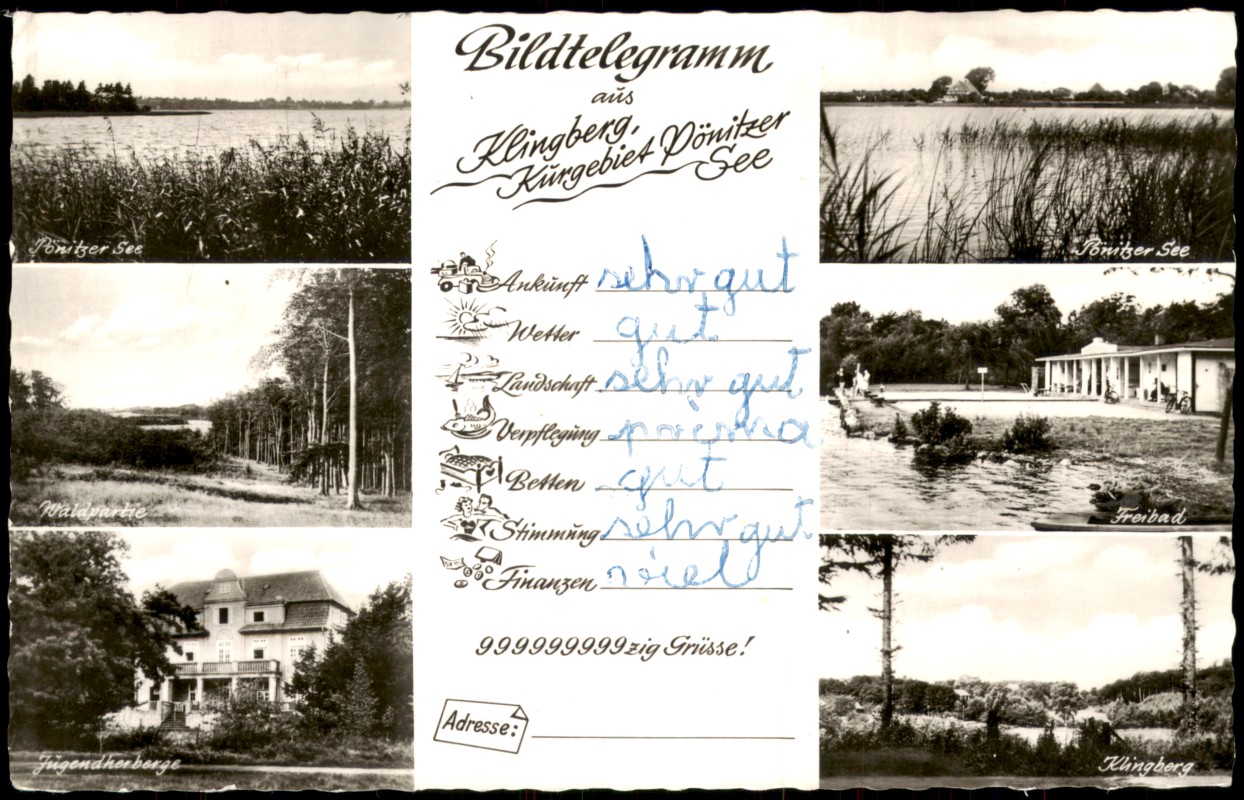 Bildtelegramm
aus
Klingberg,
Kurgebiet Pönitzer
See
Pönitzer See
Waldpartie
Jugendherberge
Ankunft sehr gut
Wetter gut
Landschaft sehr gut
Verpflegung prima
Betten gut
Stimmung sehr gut
Finanzen viel
999999999zig Grüsse!
Adresse:
Pönitzer See
Freibad
Klingberg